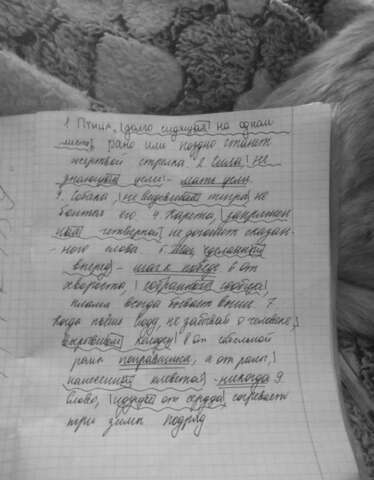 1 Птица, долго сидящая на одном
месте, рано или поздно станет
жертвой стрелка. 2 Сила не
знающая цели - мать лени
3. Собака, не видевшая тигра, не
боится его. 4 Карета, запряжен-
ная четверкой, не догонит сказан-
ного слова. 5. Шаг, сделанный
вперед - шаг к победе 6 От
хвороста, собранного сообща,
пламя всегда бывает выше 7
Когда пьешь воду, не забывай о человеке,
вырывшем колодец 8 от сабельной
раны поправишься, а от раны,
нанесенной клеветой - никогда 9
Слово, идущее от сердца, согревает
три зимы подряд